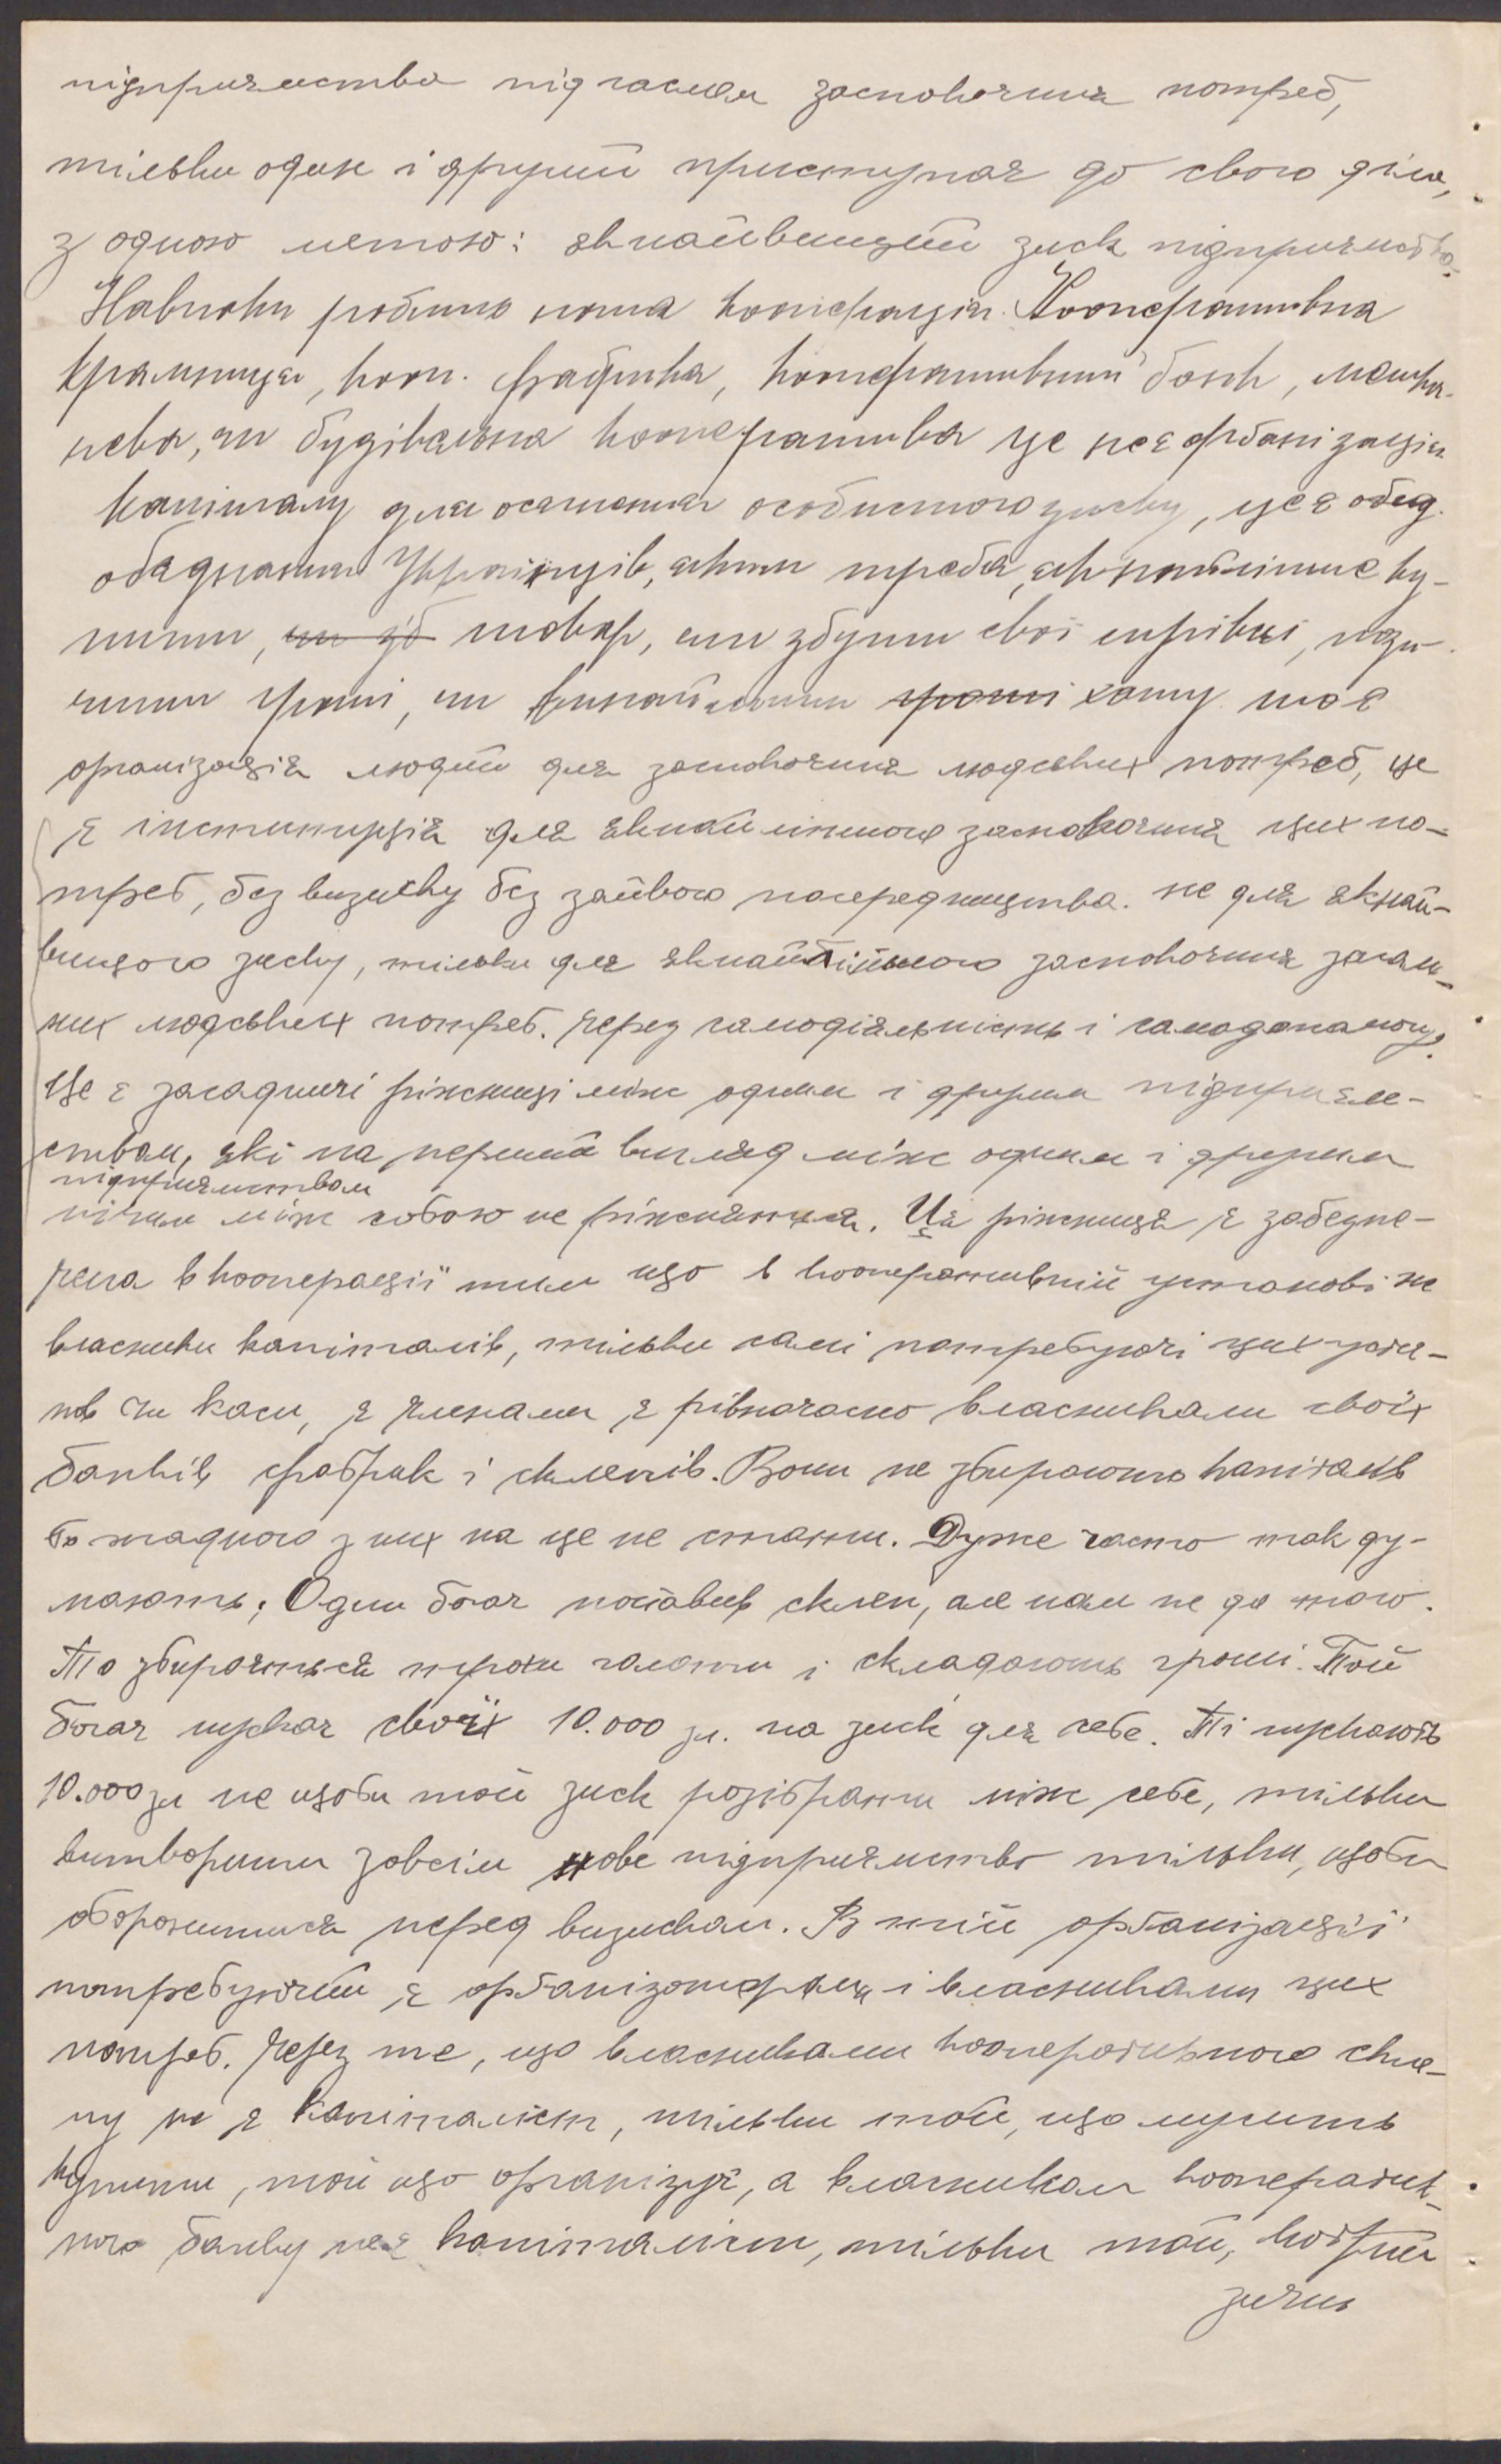 підприємства під гаслом заспокоєння потреб,
тільки один і другий приступає до свого діла,
з одною метою: якнайвищий зиск підприємства.
Навпаки робить наша кооперація. Кооперативна
крамниця, кооп. фабрика, кооперативний банк, мешка-
нева, чи будівельна кооператива це не є орґанізація
капіталу для осягнення особистого зиску, це є обєд
обєднання Українців, яким треба, якнайліпше ку-
пити, чи зб товар, чи збути свої вирібки, пози-
чити гроші, чи винаймити гроші хату. то є
організація людей для заспокоєння людських потреб, це
є інституція для якнайліпшого заспокоєння цих по-
треб, без визиску без зайвого посередництва. не для якнай-
вищого зиску, тільки для якнайбільшого заспокоєння загаль-
них людських потреб. через самодіяльність і самодопомогу.
Це є засадничі ріжниці між одним і другим підприєм-
ством, які на перший вигляд між одним і другим
підприємством
нічим між собою не ріжняться. Ця ріжниця є забезпе-
чена в кооперації тим що в кооперативній установі не
власники капіталів, тільки самі потребуючі цих уста-
нов чи каси, є членами є рівночасно власниками своїх
банків фабрик і склепів. Вони не збирають капіталів
бо жадного з них на це не стати. Дуже часто так ду-
мають; Один богач поставив склеп, але нам не до того.
То збираються гроши і складають гроші. Той
богач пускає своїх 10.000 зл. на зиск для себе. Ті пускають
10.000 зл не щоби той зиск розібрати між себе, тільки
витворити зовсім нове підприємство тільки, щоби
оборонитися перед визиском. В тій орґанізації
потребуючий є орґанізатором і власниками цих
потреб. Через те, що власниками кооперативного скле-
пу не є капіталіст, тільки той, що мусить
купити, той що організує, а власником кооператив-
ного банку не є капіталіст, тільки той, котрий
зичить